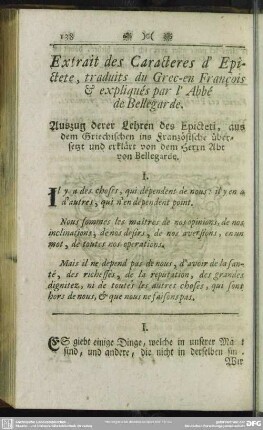 128
Extrait des Caracteres d' Epi-
ctete, traduits du Grec-en François
& expliqués par l' Abbé
de Bellegarde.
Auszug derer Lehren des Epicteti, aus
dem Griechischen ins Französische über-
setzt und erklärt von dem Herrn Abt
von Bellegarde.
I.
Il y a des choses, qui dépendent de nous; il y en a
d'autres, qui n'en dépendent point.
Nous sommes les maîtres de nos opinions, de nos
inclinations, de nos desirs, de nos aversions, en un
mot, de toutes nos operations.
Mais il ne depend pas de nous, d'avoir de la san-
té, des richesses, de la reputation, des grandes
dignitez, ni de toutes les autres choses, qui sont
hors de nous, & que nous ne faisons pas.
I.
ES giebt einige Dinge, welche in unserer Ma t
sind, und andere, die nicht in derselben sin
Wir